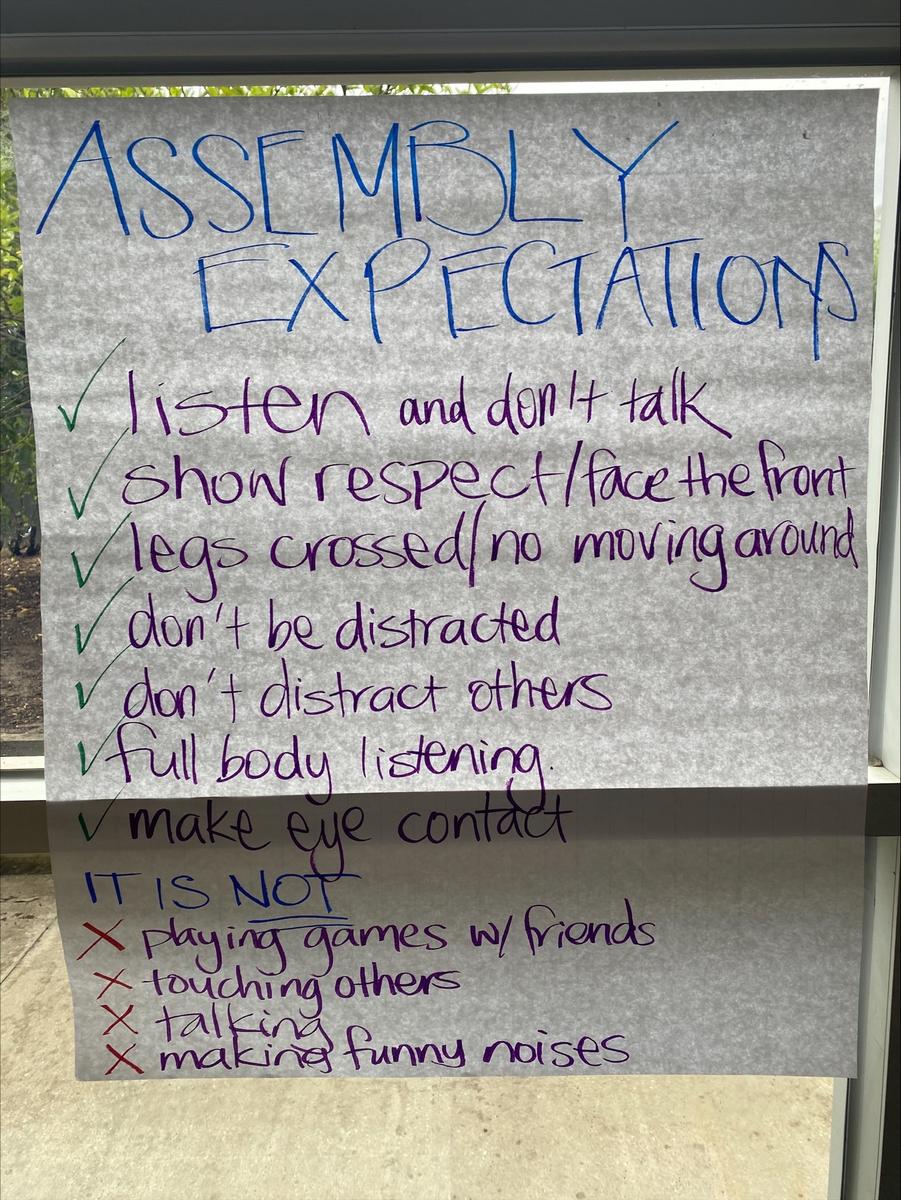 ASSEMBLY
EXPECTATIONS
✓ listen and don't talk
✓ show respect/face the front
✓ legs crossed/no moving around
✓ don't be distracted
✓ don't distract others
✓ full body listening.
✓ make eye contact
IT IS NOT
X playing games w/ friends
X touching others
X talking
X making funny noises